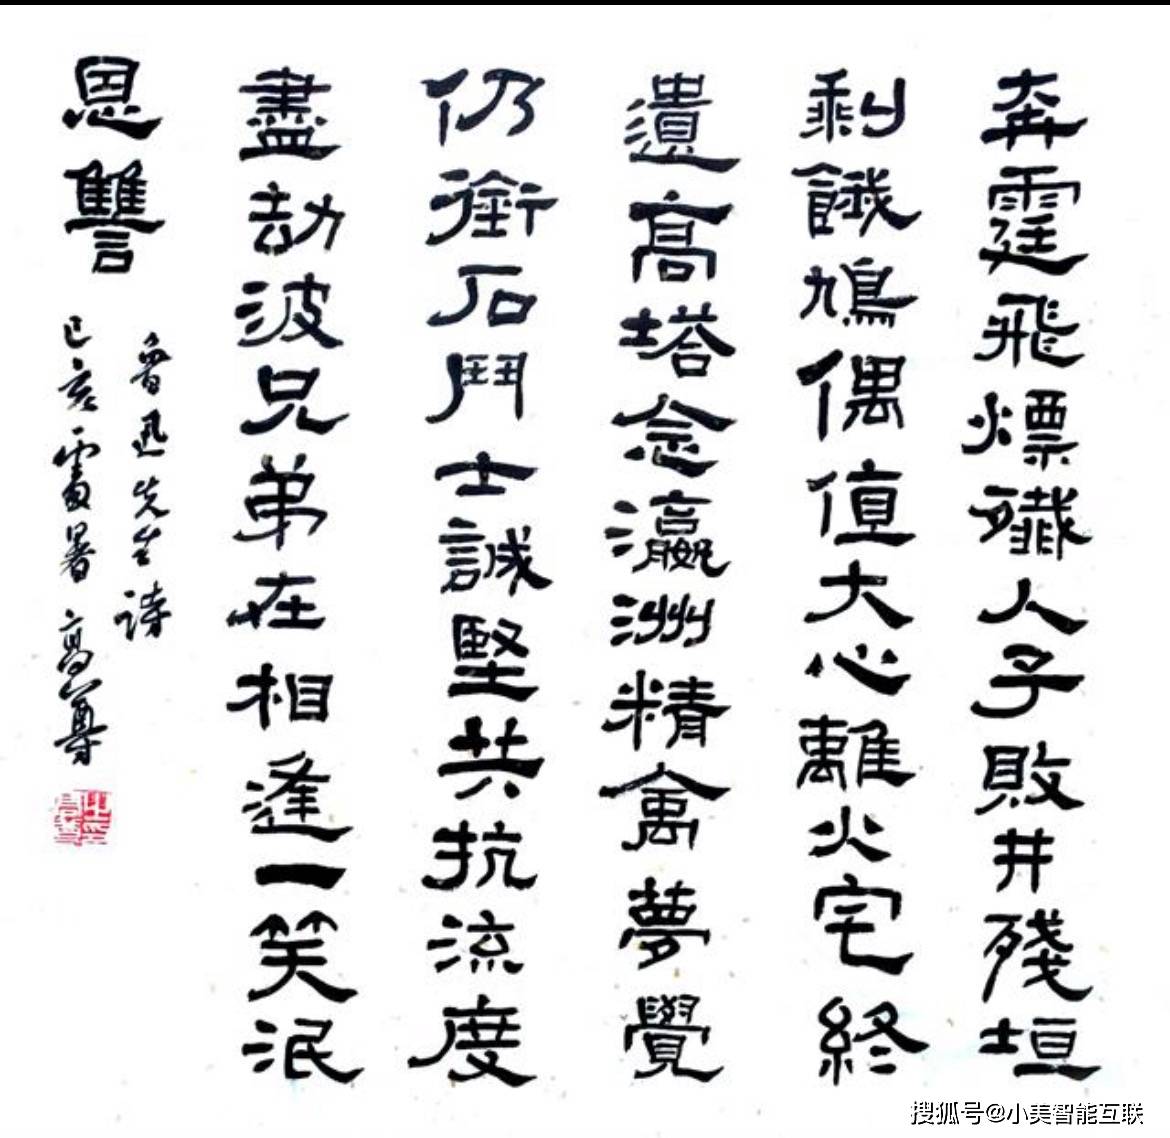 奔霆飛熛殲人子敗井殘垣
剩餓鳩偶值大心離火宅終
遺高塔念瀛洲精禽夢覺
仍銜石鬥士誠堅共抗流度
盡劫波兄弟在相逢一笑泯
恩讐
魯迅先生詩
己亥暑 高尊
搜狐号@小美智能互联